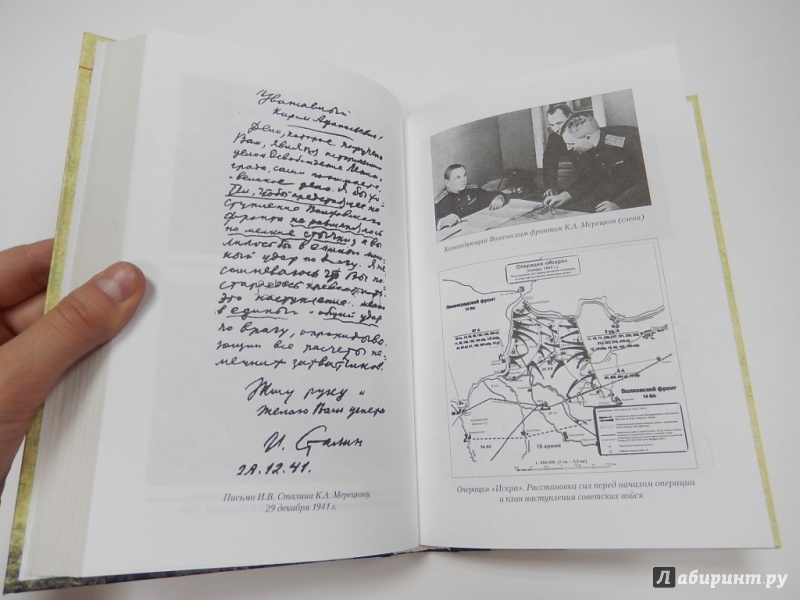 Уважаемый
Кирилл Афанасьевич,
Дело, которое поручено
Вам, является историческим
делом. Освобождение Ленин-
града, сами понимаете,
великое дело. Я бы хо-
тел, чтобы предстоящее на-
ступление Волховского
фронта не разменялось
на мелкие стычки, а вы-
лилось бы в единый мощ-
ный удар по врагу. Я не
сомневаюсь, что Вы по-
стараетесь превратить
это наступление именно
в единый и общий удар
по врагу, опрокидываю-
щий все расчеты не-
мецких захватчиков.
Жму руку и
желаю Вам успеха
И. Сталин
29.12.41.
Письмо И.В. Сталина К.А. Мерецкову.
29 декабря 1941 г.
Командующий Волховским фронтом К.А. Мерецков (слева)
Операция «Искра»
(январь 1943 г.)
Ленинградский фронт
14 ВА
67 А
2 уд. А
8 А
Волховский фронт
14 ВА
18 армия
Операция «Искра». Расстановка сил перед началом операции
и план наступления советских войск
Лабиринт.ру